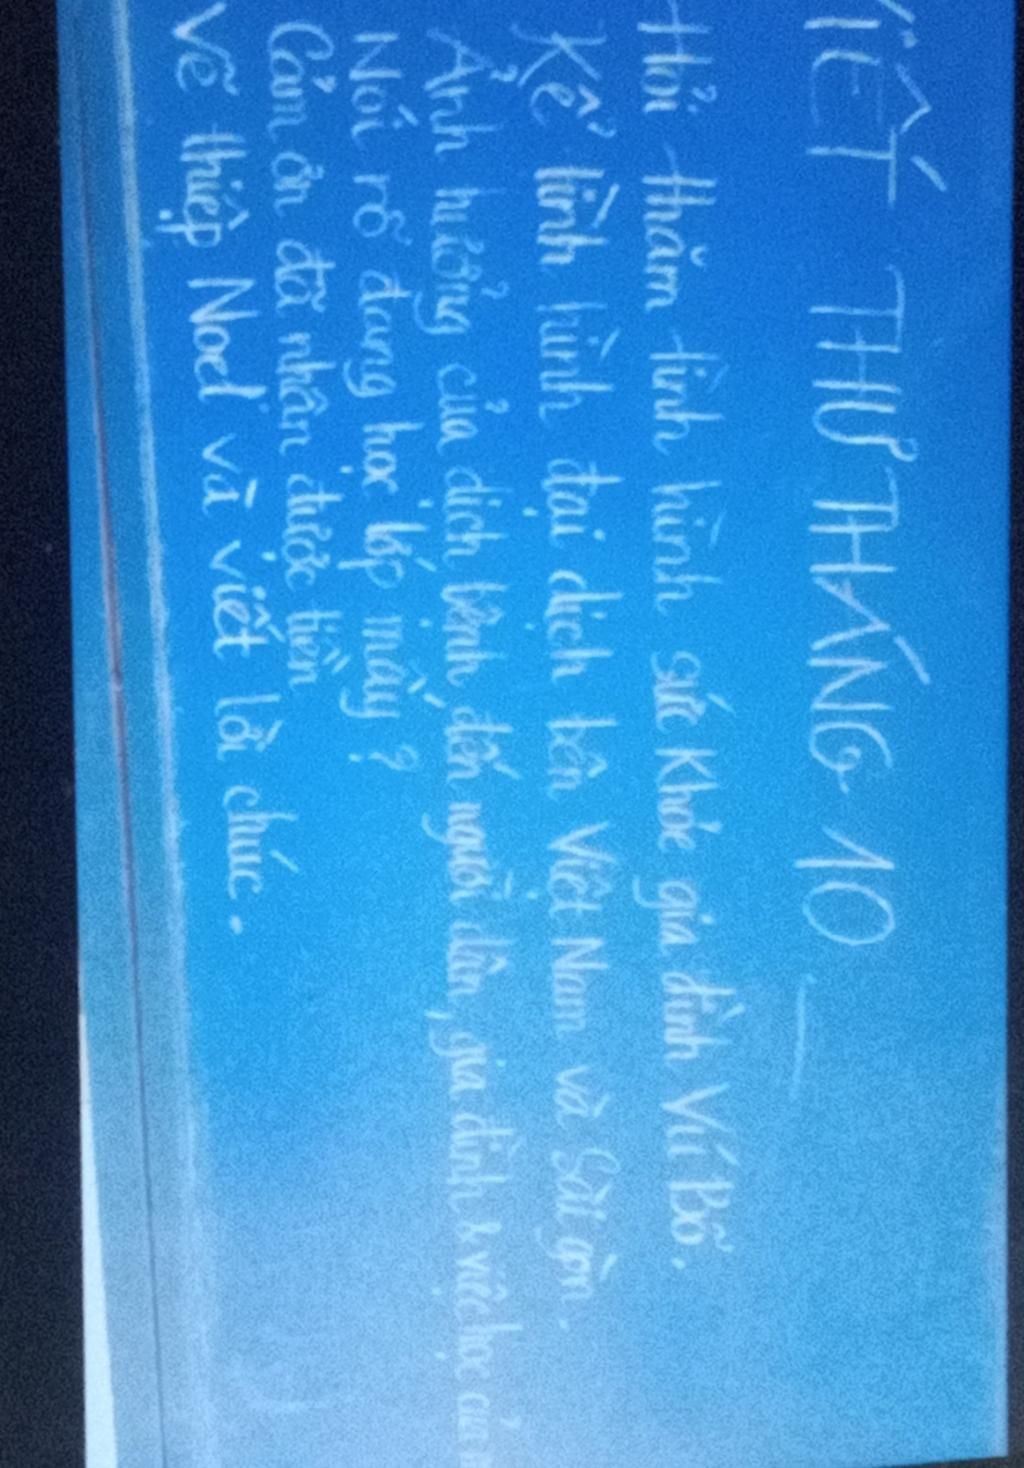 VIẾT THƯ THÁNG 10
Hỏi thăm tình hình sức khỏe gia đình Ví Bõ.
Kể tình hình đại dịch bên Việt Nam và Sài gòn.
Ảnh hưởng của dịch bệnh đến người dân, gia đình & việc học của
Nói rõ đang học lớp mấy?
Cảm ơn đã nhận được tiền
Vẽ thiệp Noel và viết lời chúc.